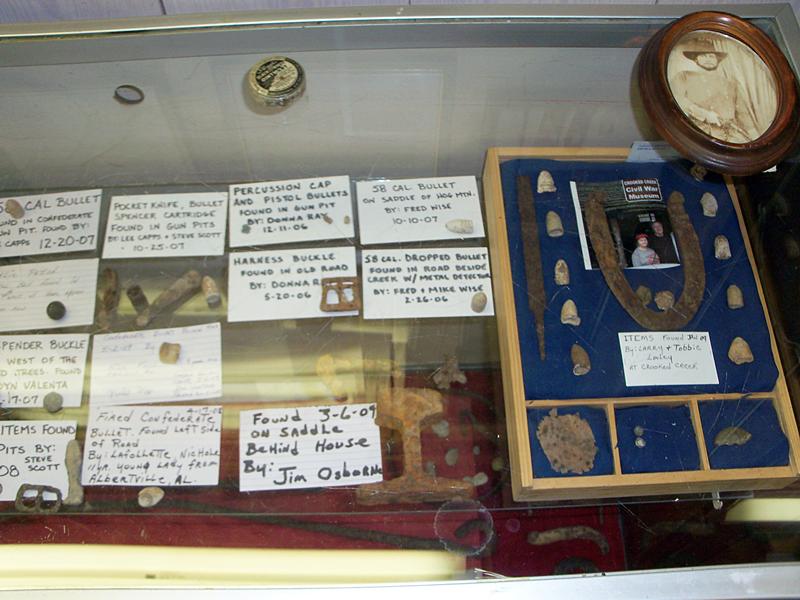 CAL BULLET
FOUND IN CONFEDERATE
PIT. FOUND BY:
CAPPS 12-20-07
POCKET KNIFE, BULLET
SPENCER CARTRIDGE
FOUND IN GUN PITS
BY: LEE CAPPS + STEVE SCOTT
10-25-07
PERCUSSION CAP
AND PISTOL BULLETS
FOUND IN GUN PIT
BY: DONNA RAY
12-11-06
58 CAL. BULLET
ON SADDLE OF HOG MTN.
BY: FRED WISE
10-10-07
HARNESS BUCKLE
FOUND IN OLD ROAD
BY: DONNA R
5-20-06
58 CAL. DROPPED BULLET
FOUND IN ROAD BESIDE
CREEK W/ METAL DETECTOR
BY: FRED + MIKE WISE
2-26-06
SPENDER BUCKLE
WEST OF THE
TREES. FOUND
DYN VALENTA
17-07
ITEMS FOUND
PITS BY:
STEVE
SCOTT
08
4-17-08
FIRED CONFEDERATE
BULLET. FOUND LEFT SIDE
OF ROAD
BY: LAFOLLETTE, NICHOLE
11 YR. YOUNG LADY FROM
ALBERTVILLE, AL.
FOUND 3-6-09
ON SADDLE
BEHIND HOUSE
BY: JIM OSBORNE
CROOKED CREEK
Civil War
Museum
ITEMS FOUND
BY: LARRY + Tobbie
AT CROOKED CREEK